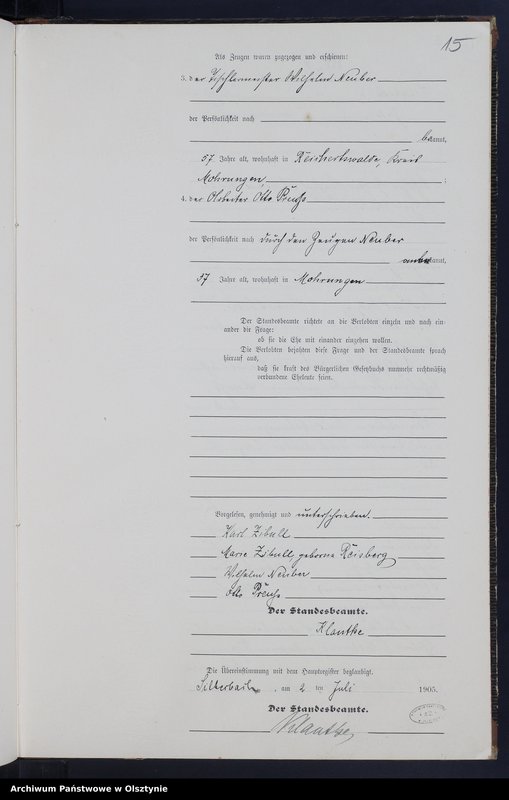 15
Als Zeugen waren zugezogen und erschienen:
3. der Tischlermeister Wilhelm Neuber
der Persönlichkeit nach
bekannt,
57 Jahre alt, wohnhaft in Reichertswalde, Kreis
Mohrungen,;
4. der Otto Preuss
der Persönlichkeit nach durch den Zeugen Neuber
anerkannt,
57 Jahre alt, wohnhaft in Mohrungen
Der Standesbeamte richtete an die Verlobten einzeln und nach ein-
ander die Frage:
ob sie die Ehe mit einander eingehen wollen.
Die Verlobten bejahten diese Frage und der Standesbeamte sprach
hierauf aus,
daß sie kraft des Bürgerlichen Gesetzbuchs nunmehr rechtmäßig
verbundene Eheleute seien.
Vorgelesen, genehmigt und unterschrieben.
Karl Zibull
Marie Zibull, geborne Reisberg
Wilhelm Neuber
Otto Preuss
Der Standesbeamte.
Klautke
Die Übereinstimmung mit dem Hauptregister beglaubigt.
Silberbach, am 2 ten Juli 1905.
Der Standesbeamte.
Klautke
Archiwum Państwowe w Olsztynie